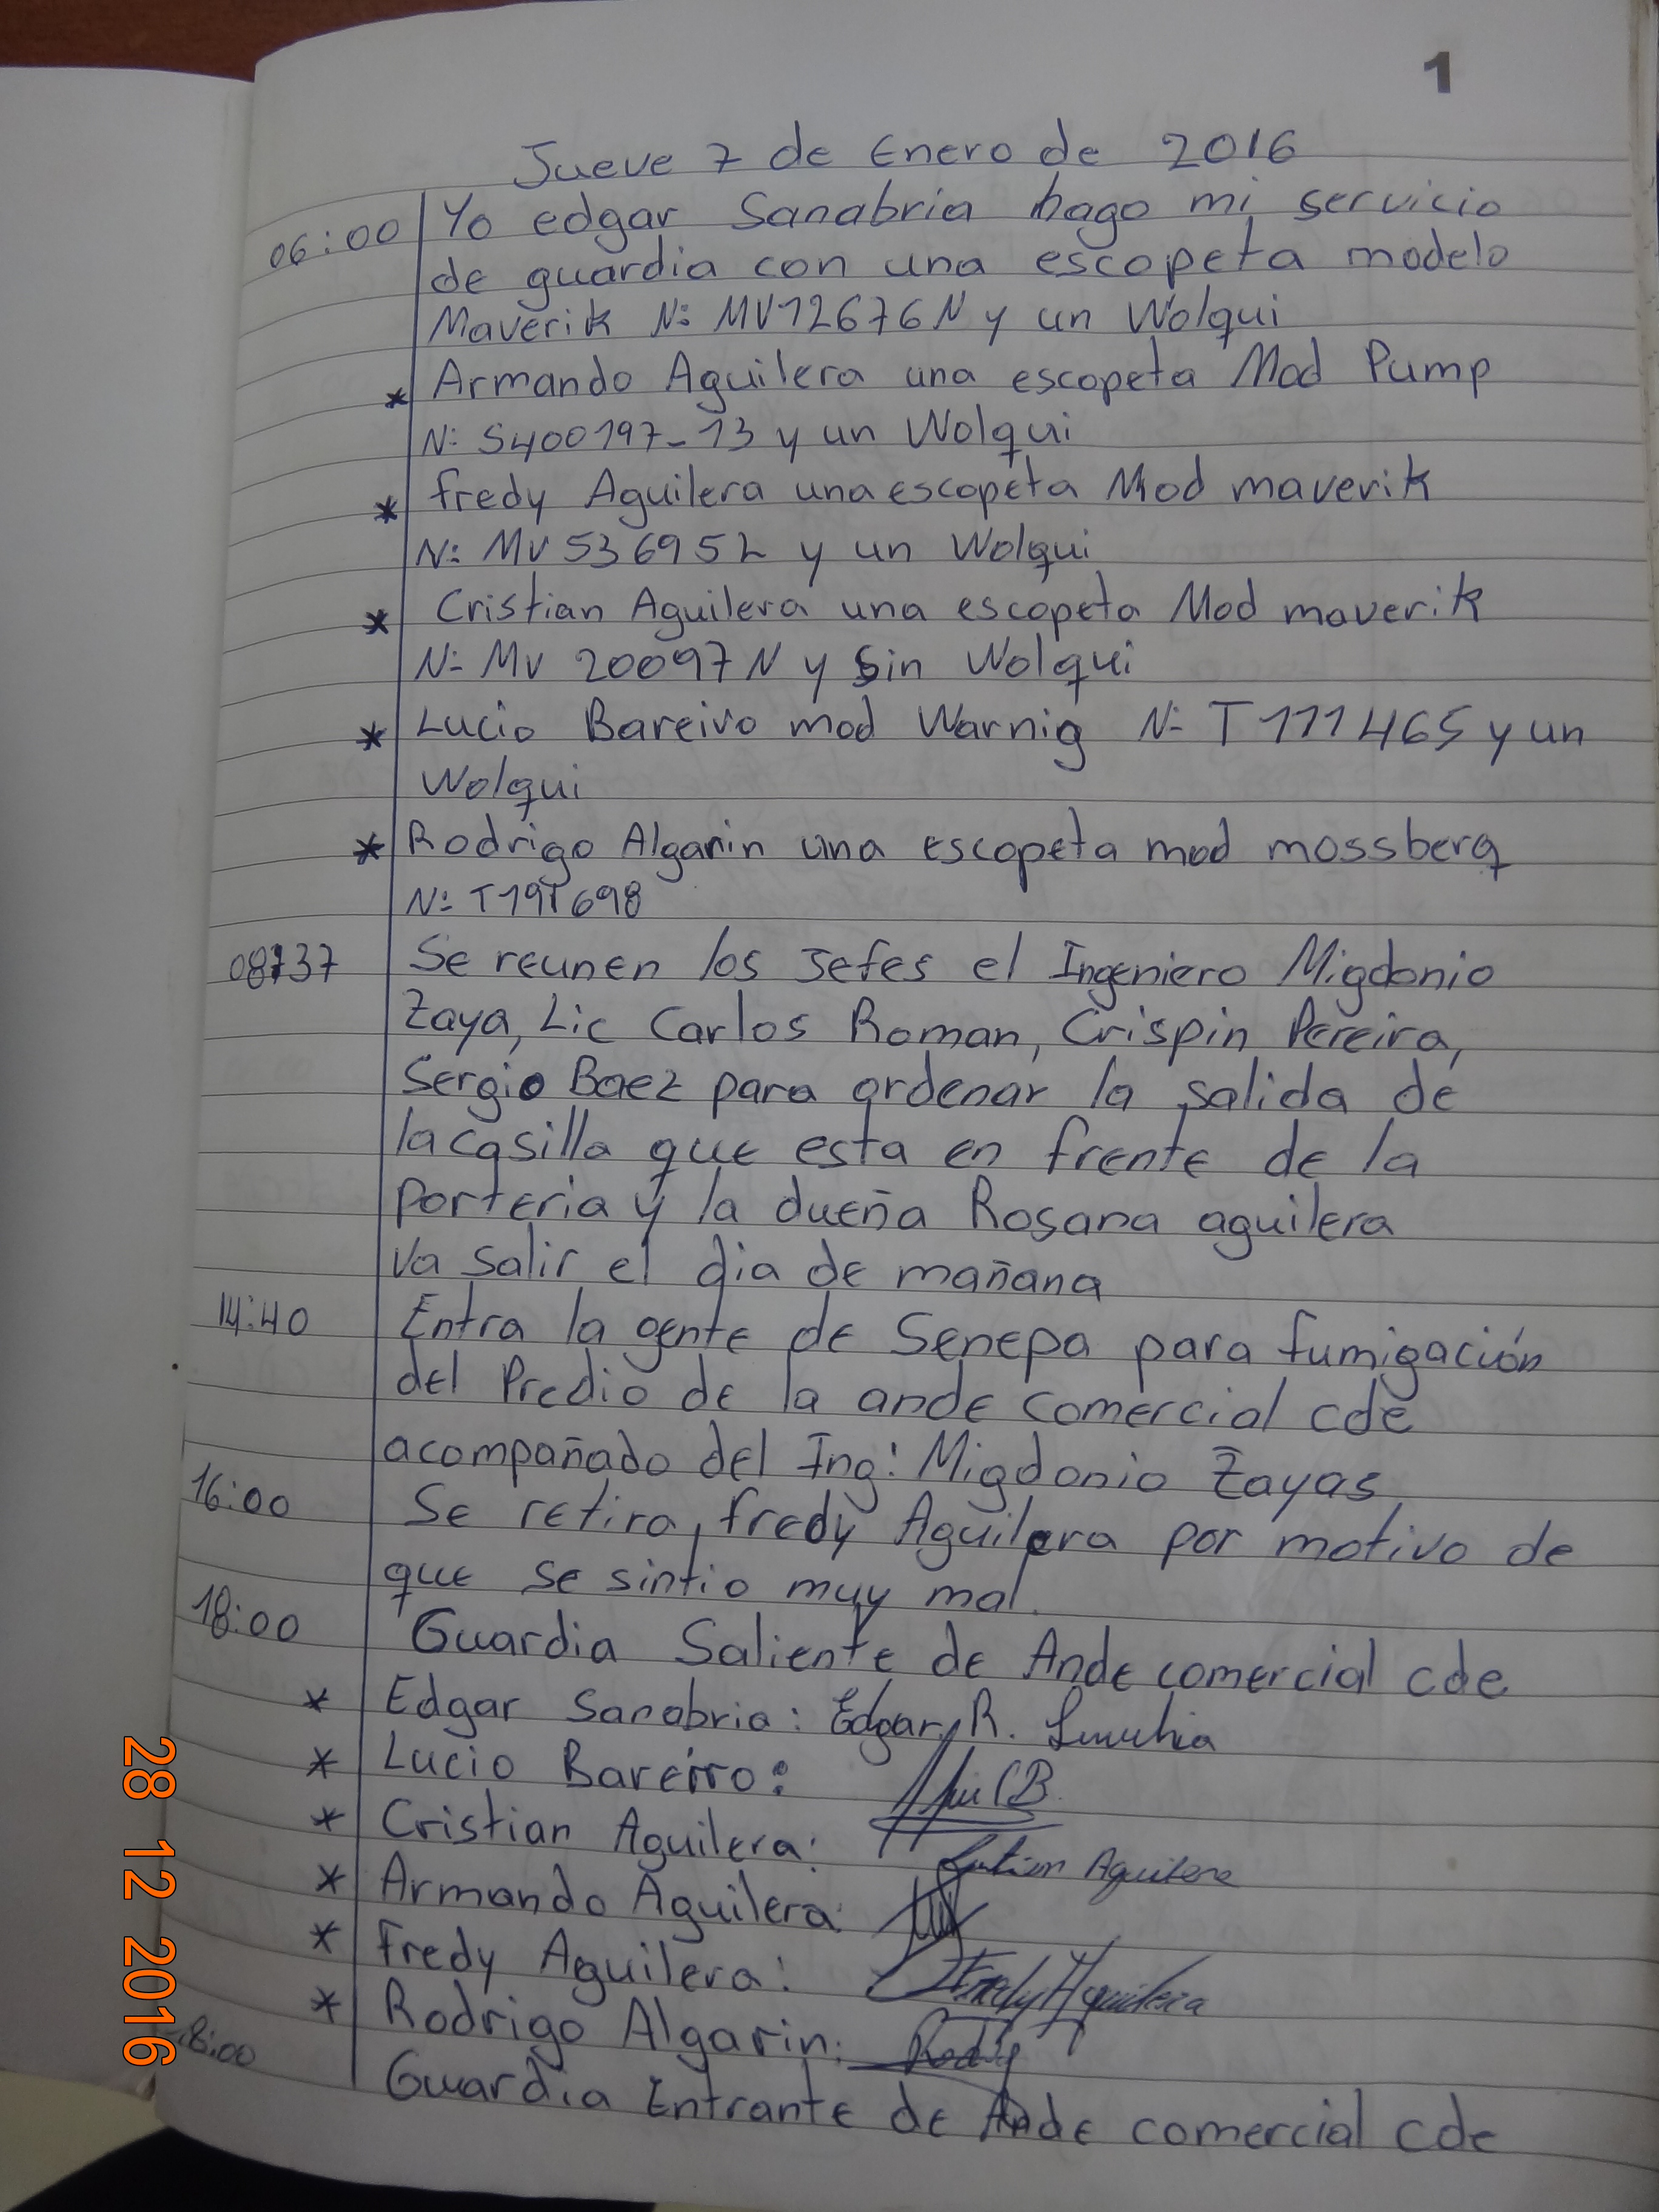 1
Jueve 7 de Enero de 2016
06:00 Yo edgar Sanabria hago mi servicio
de guardia con una escopeta modelo
Maverik N: MV12676N y un Wolqui
* Armando Aguilera una escopeta Mod Pump
N: S400197-13 y un Wolqui
* fredy Aguilera una escopeta Mod maverik
N: MV 536952 y un Wolqui
* Cristian Aguilera una escopeta Mod maverik
N: MV 20097N y sin Wolqui
* Lucio Bareiro mod Warnig N: T111465 y un
Wolqui
* Rodrigo Algarin una escopeta mod mossberg
N: T191698
08:37 Se reunen los Jefes el Ingeniero Migdonio
Zaya, Lic Carlos Roman, Crispin Pereira,
Sergio Baez para ordenar la salida de
la casilla que esta en frente de la
porteria y la dueña Rosana aguilera
va salir el dia de mañana
14:40 Entra la gente de Senepa para fumigación
del Predio de la ande comercial cde
acompañado del Ing: Migdonio Zayas
16:00 Se retira, fredy Aguilera por motivo de
que se sintio muy mal.
18:00 Guardia Saliente de Ande comercial cde
* Edgar Sanabria: Edgar R.
* Lucio Bareiro:
* Cristian Aguilera: Cristian Aguilera
* Armando Aguilera:
* Fredy Aguilera: Fredy Aguilera
* Rodrigo Algarin:
18:00 Guardia Entrante de Ande comercial cde
28 12 2016